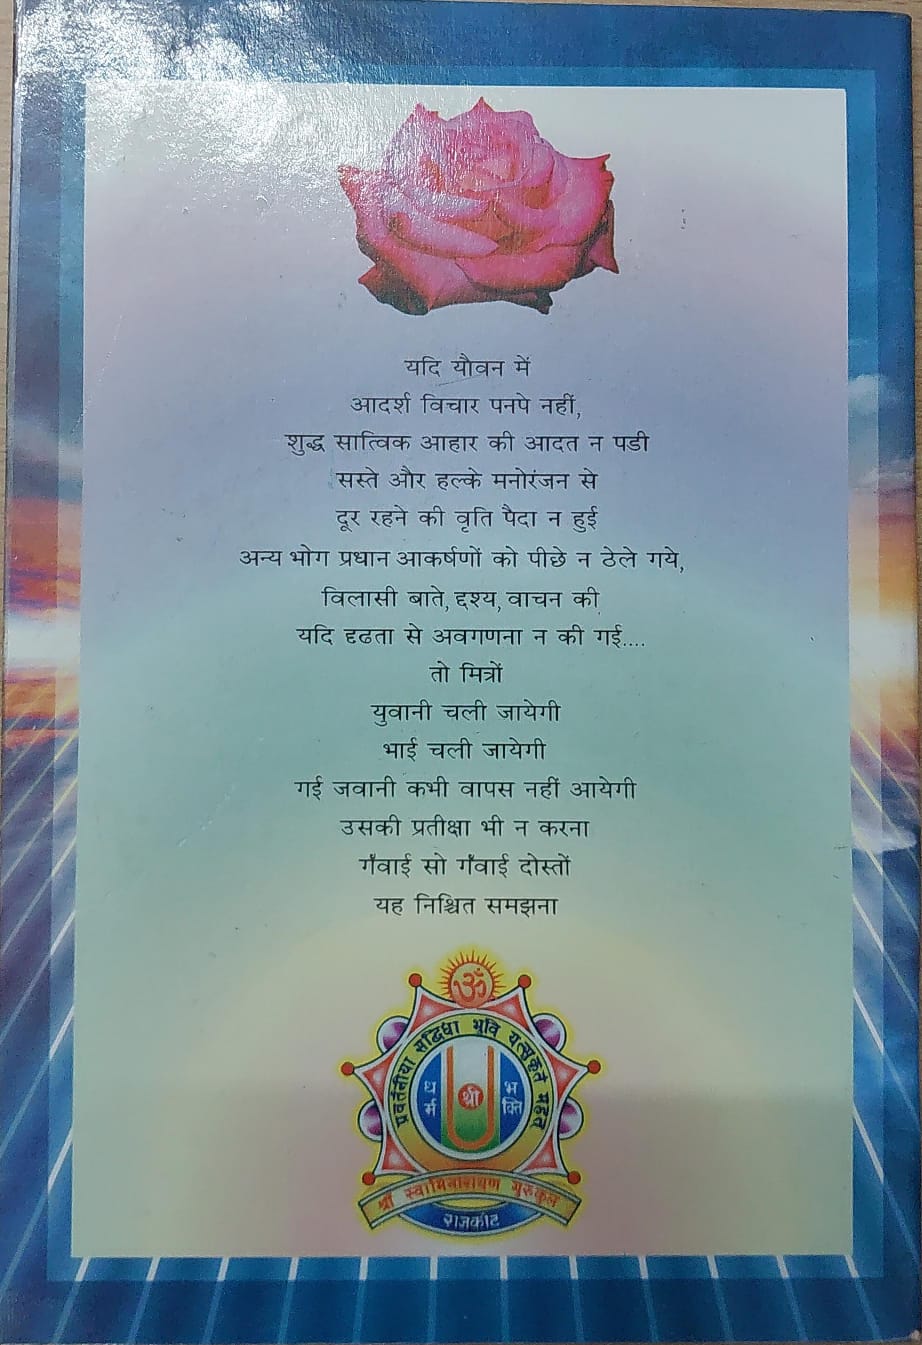 यदि यौवन में
आदर्श विचार पनपे नहीं,
शुद्ध सात्विक आहार की आदत न पडी
सस्ते और हल्के मनोरंजन से
दूर रहने की वृति पैदा न हुई
अन्य भोग प्रधान आकर्षणों को पीछे न ठेले गये,
विलासी बाते, द्दश्य, वाचन की
यदि दृढता से अवगणना न की गई....
तो मित्रों
युवानी चली जायेगी
भाई चली जायेगी
गई जवानी कभी वापस नहीं आयेगी
उसकी प्रतीक्षा भी न करना
गँवाई सो गँवाई दोस्तों
यह निश्चित समझना
ॐ
प्रवर्तनीया सद्विद्या भूवि यत्सुकृतं महत्
धर्म श्री भक्ति
श्री स्वामिनारायण गुरुकुल
राजकोट